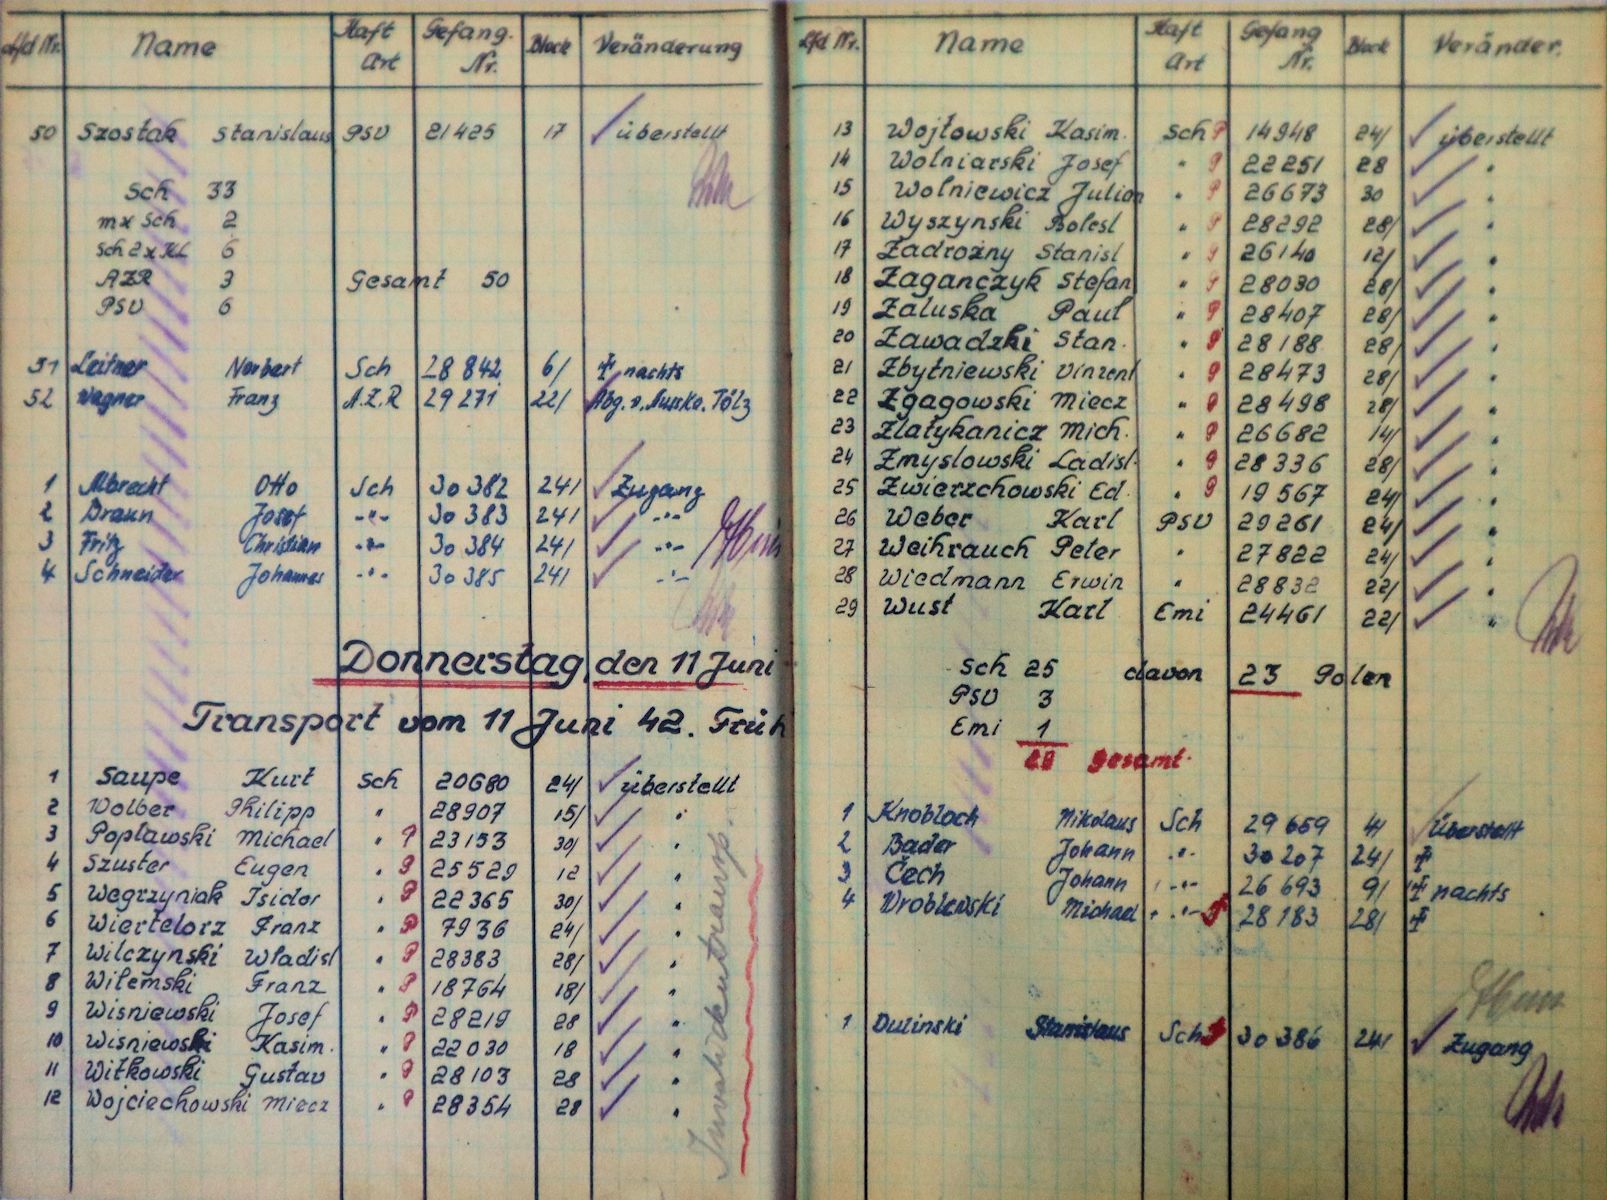 Lfd Nr. Name Haft Art Gefang. Nr. Block Veränderung
50 Szostak Stanislaus PSV 21425 17 überstellt
Sch 33
mx Sch 2
Sch 2 x KL 6
AZR 3 Gesamt 50
PSV 6
51 Leitner Norbert Sch 28842 6/ ☩ nachts
52 Wagner Franz A.Z.R 29271 22/ Abg. n. Ausko. Tölz
1 Albrecht Otto Sch 30382 24/ ✓ Zugang
2 Braun Josef -"- 30383 24/ ✓ -"-
3 Fritz Christian -"- 30384 24/ ✓ -"-
4 Schneider Johannes -"- 30385 24/ ✓ -"-
Donnerstag, den 11 Juni
Transport vom 11 Juni 42. Früh
1 Saupe Kurt Sch 20680 24/ ✓ überstellt
2 Wolber Philipp " 28907 15/ ✓ "
3 Popławski Michael " P 23153 30/ ✓ "
4 Szuster Eugen " P 25529 12 ✓ "
5 Wegrzyniak Isidor " P 22365 30/ ✓ "
6 Wiertelorz Franz " P 7936 24/ ✓ "
7 Wilczynski Władisl " P 28383 28/ ✓ "
8 Witemski Franz " P 18764 18/ ✓ "
9 Wisniewski Josef " P 28219 28 ✓ "
10 Wisniewski Kasim. " P 22030 18 ✓ "
11 Witkowski Gustav " P 28103 28 ✓ "
12 Wojciechowski Miecz " P 28354 28 ✓ "
Invalidentransp.
Lfd Nr. Name Haft Art Gefang Nr. Block Veränder.
13 Wojtowski Kasim. Sch P 14948 24/ ✓ überstellt
14 Wolniarski Josef " P 22251 28 ✓ "
15 Wolniewicz Julian " P 26673 30 ✓ "
16 Wyszynski Bolesl " P 28292 28/ ✓ "
17 Zadrozny Stanisl " P 26140 12/ ✓ "
18 Zaganczyk Stefan " P 28030 28/ ✓ "
19 Zaluska Paul " P 28407 28/ ✓ "
20 Zawadzki Stan. " P 28188 28/ ✓ "
21 Zbytniewski Vinzent " P 28473 28/ ✓ "
22 Zgagowski Miecz " P 28498 28/ ✓ "
23 Zlatykanicz Mich. " P 26682 14/ ✓ "
24 Zmyslowski Ladisl. " P 28336 28/ ✓ "
25 Zwierzchowski Ed. " P 19567 24/ ✓ "
26 Weber Karl PSV 29261 24/ ✓ "
27 Weihrauch Peter " 27822 24/ ✓ "
28 Wiedmann Erwin " 28832 22/ ✓ "
29 Wust Karl Emi 24461 22/ ✓ "
Sch 25 davon 23 Polen
PSV 3
Emi 1
29 gesamt.
1 Knobloch Nikolaus Sch 29659 4/ ✓ Überstellt
2 Bader Johann -"- 30207 24/ ☩
3 Čech Johann -"- 26693 9/ ☩ nachts
4 Wroblewski Michael -"- P 28183 28/ ☩
1 Dulinski Stanislaus Sch P 30386 24/ ✓ Zugang